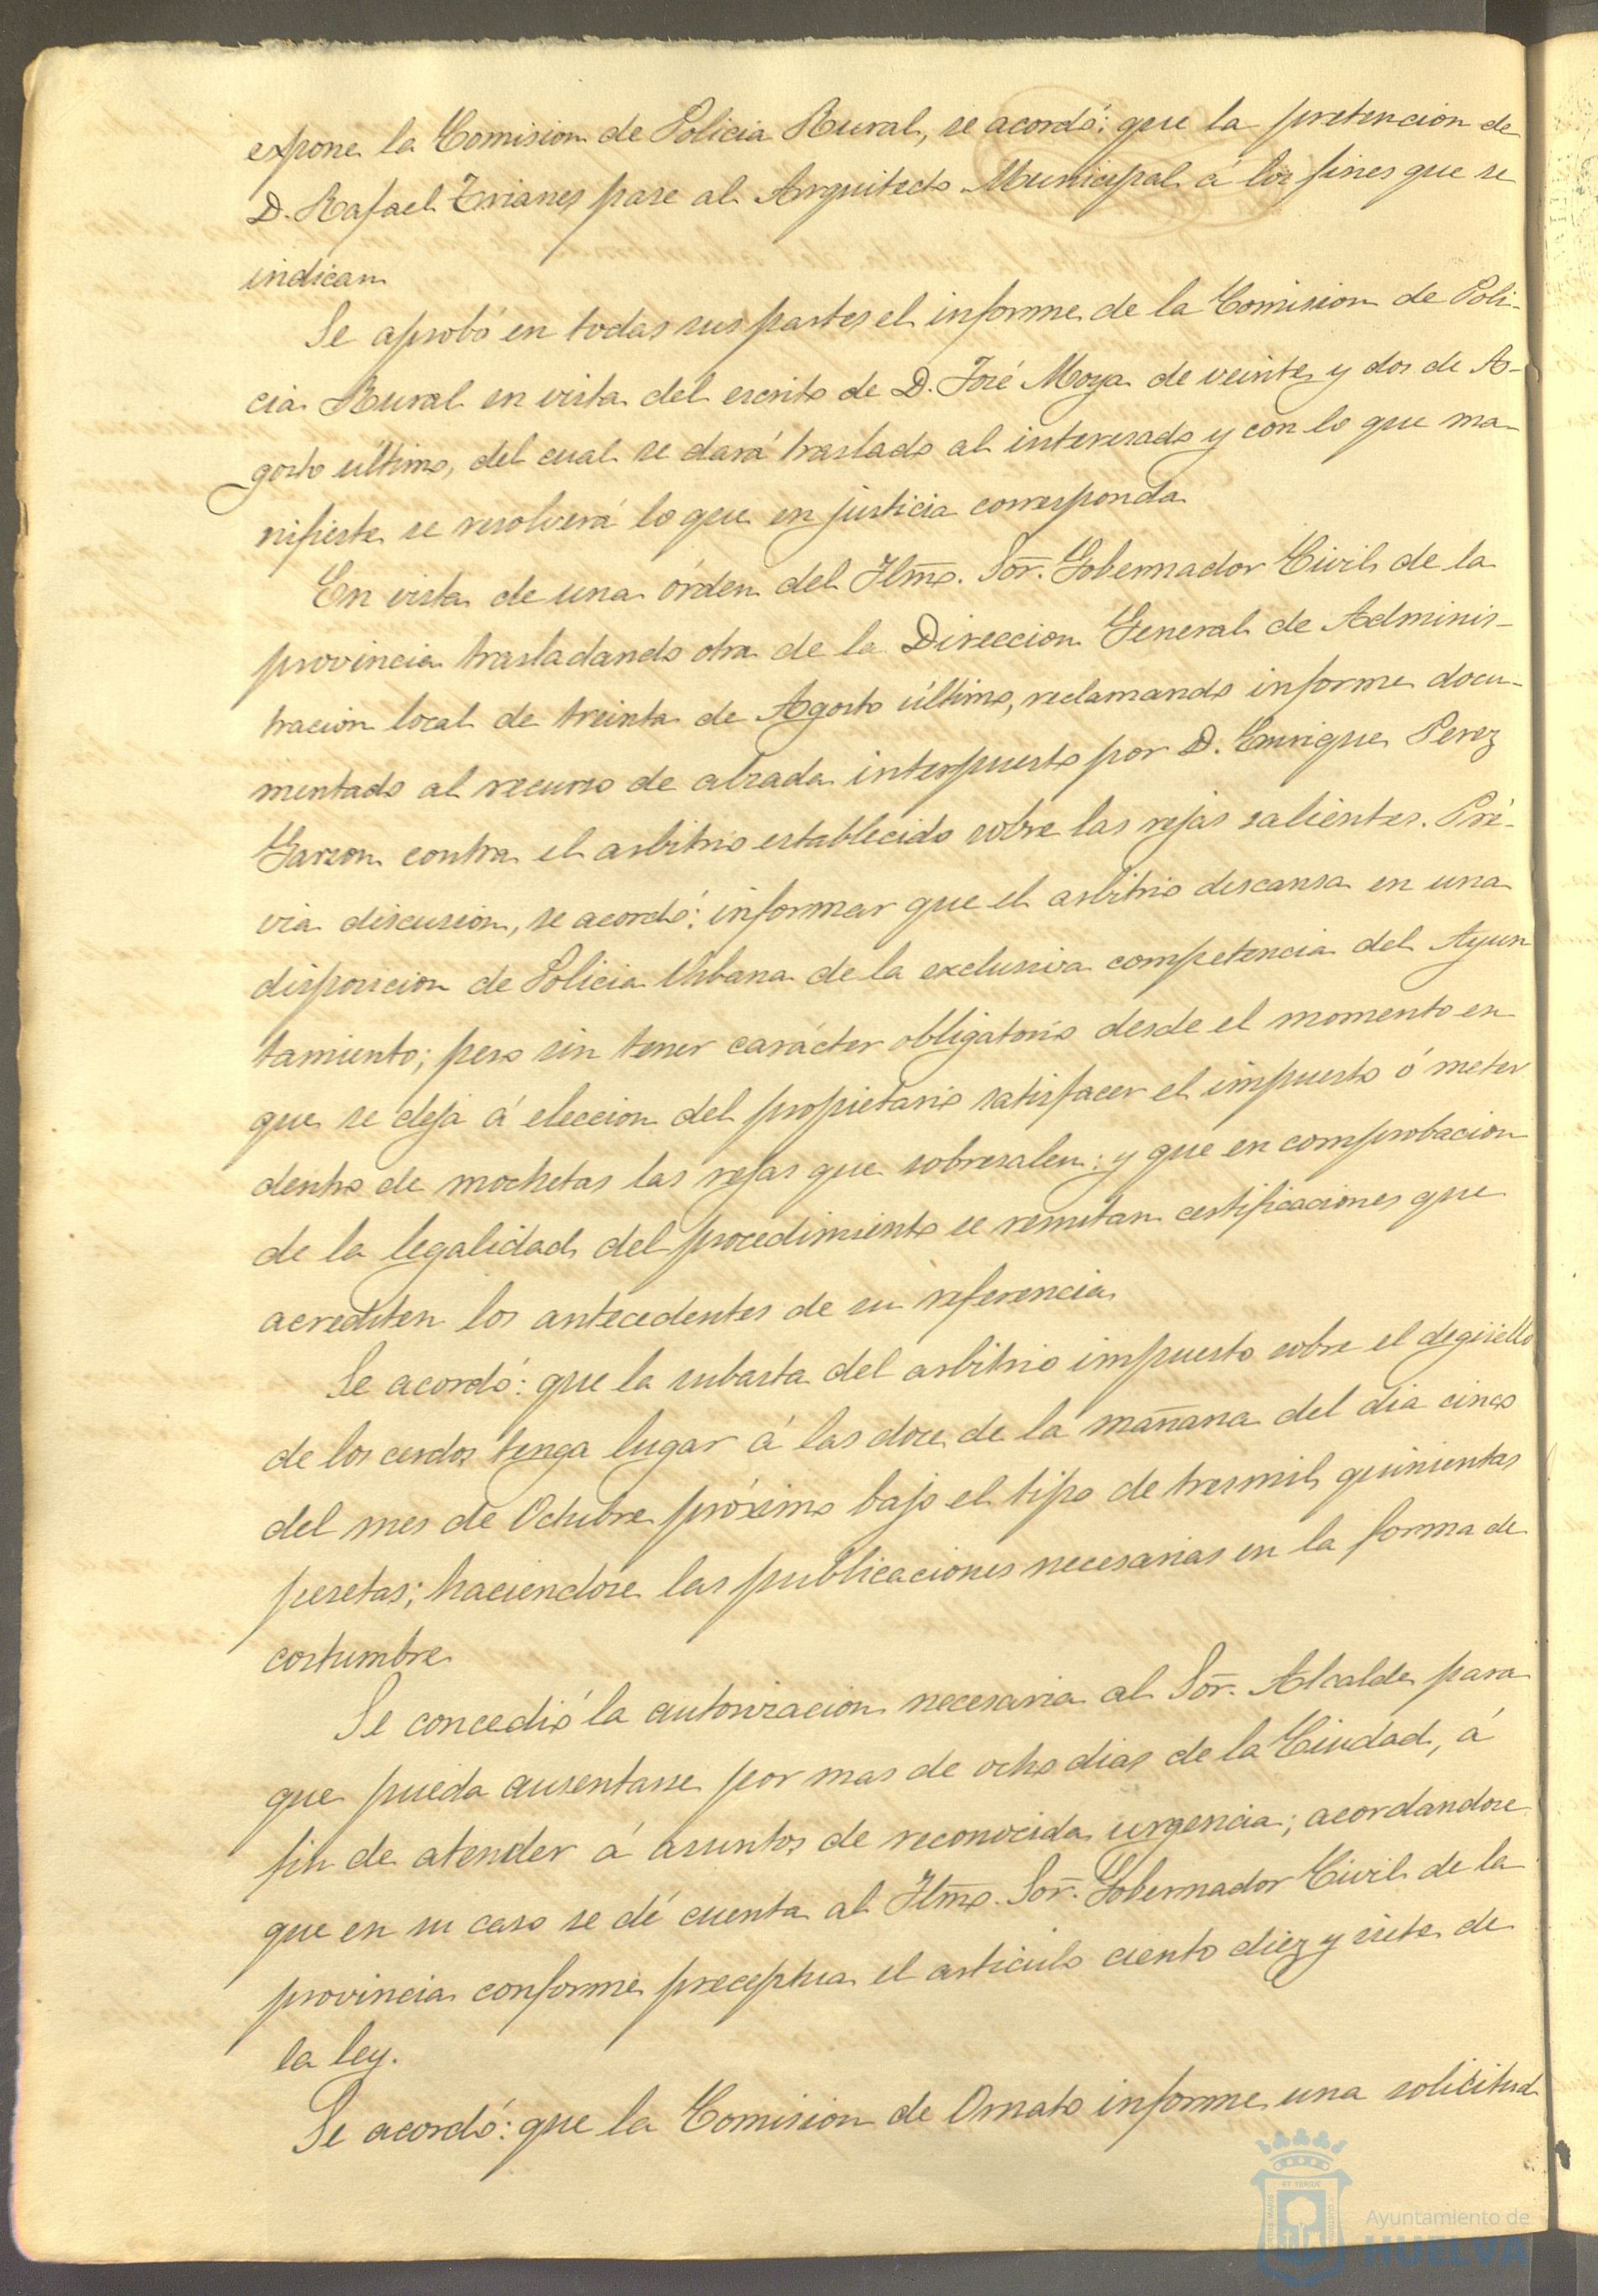 expone la Comision de Policia Rural, se acordó: que la pretencion de
D. Rafael Trianes pase al Arquitecto Municipal á los fines que se
indican
Se aprobó en todas sus partes el informe de la Comision de Poli-
cia Rural en vista del escrito de D. José Moya de veinte y dos de A-
gosto último, del cual se dará traslado al interesado y con lo que ma-
nifieste se resolverá lo que en justicia corresponda
En vista de una órden del Iltmo. Sor. Gobernador Civil de la
provincia trasladando otra de la Direccion General de Adminis-
tracion local de treinta de Agosto último, reclamando informe docu-
mentado al recurso de alzada interpuesto por D. Enrique Perez
Garzon contra el arbitrio establecido sobre las rejas salientes. Pré-
via discusion, se acordó: informar que el arbitrio descansa en una
disposicion de Policia Urbana de la exclusiva competencia del Ayun
tamiento; pero sin tener carácter obligatorio desde el momento en
que se deja á eleccion del propietario satisfacer el impuesto ó meter
dentro de mochetas las rejas que sobresalen: y que en comprobacion
de la legalidad del procedimiento se remitan certificaciones que
acrediten los antecedentes de su referencia
Se acordó: que la subasta del arbitrio impuesto sobre el degüello
de los cerdos tenga lugar á las doce de la mañana del dia cinco
del mes de Octubre próximo bajo el tipo de tresmil quinientas
pesetas; haciendose las publicaciones necesarias en la forma de
costumbre
Se concedió la autorizacion necesaria al Sor. Alcalde para
que pueda ausentarse por mas de ocho dias de la Ciudad, á
fin de atender á asuntos de reconocida urgencia; acordandose
que en su caso se dé cuenta al Iltmo. Sor. Gobernador Civil de la
provincia conforme preceptua el articulo ciento diez y siete de
la ley.
Se acordó: que la Comision de Ornato informe una solicitud
Ayuntamiento de
HUELVA